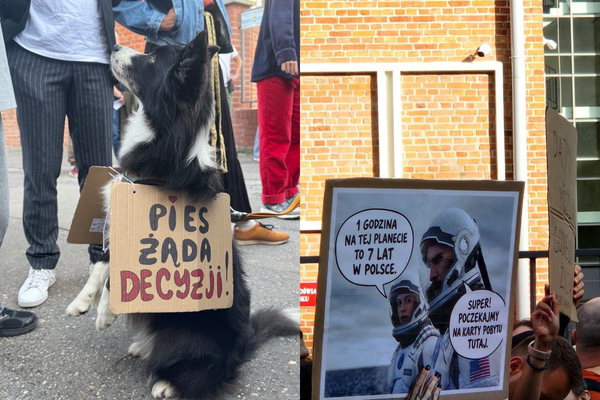 PIES
ŻĄDA
DECYZJI!
1 GODZINA
NA TEJ PLANECIE
TO 7 LAT
W POLSCE.
SUPER!
POCZEKAJMY
NA KARTY POBYTU
TUTAJ.